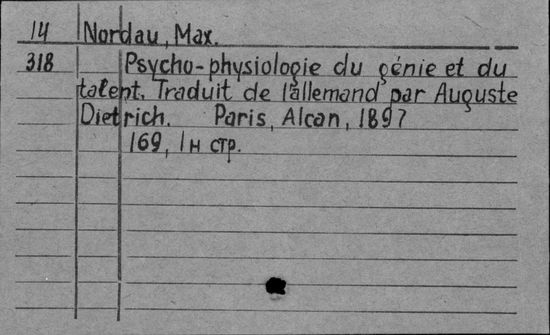 14 Nordau, Max.
318 Psycho-physiologie du génie et du
talent. Traduit de l'allemand par Auguste
Dietrich. Paris, Alcan, 1897
169, 1н стр.